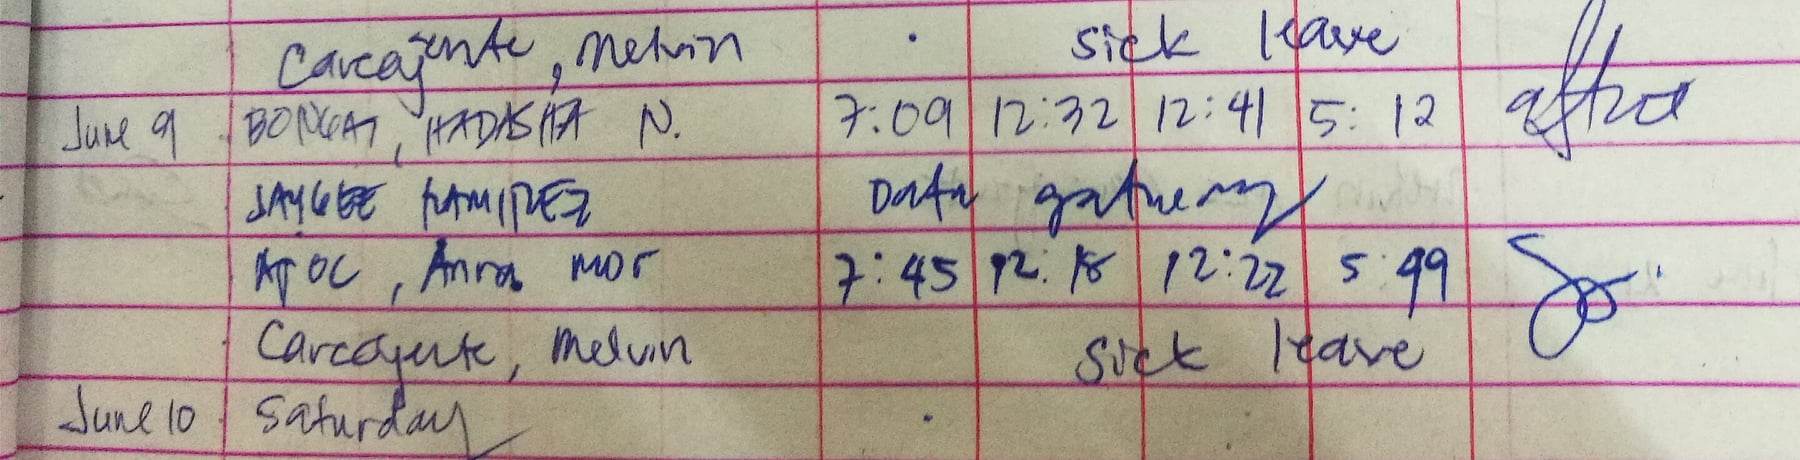 Carcajente, Melvin sick leave
June 9 BONGAT, HADASHA N. 7:09 12:32 12:41 5:12
JAYGEE RAMIREZ Data gathering
AJOC, Anna Mor 7:45 12:18 12:22 5:49
Carcajente, Melvin sick leave
June 10 Saturday